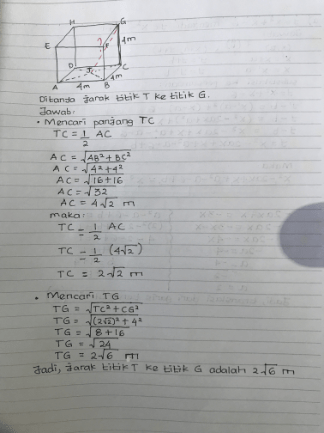 H
G
E
?
F
4m
D
T
C
4m
A
4m
B
Ditanda Jarak titik T ke titik G.
Jawab:
• Mencari panjang TC
TC = 1/2 AC
AC = √AB² + BC²
AC = √4² + 4²
AC = √16 + 16
AC = √32
AC = 4√2 m
maka:
TC = 1/2 AC
TC = 1/2 (4√2)
TC = 2√2 m
• Mencari TG
TG = √TC² + CG²
TG = √(2√2)² + 4²
TG = √8 + 16
TG = √24
TG = 2√6 m
Jadi, Jarak titik T ke titik G adalah 2√6 m